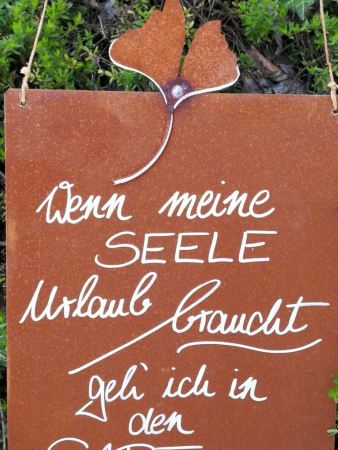 Wenn meine
SEELE
Urlaub braucht
geh' ich in
den